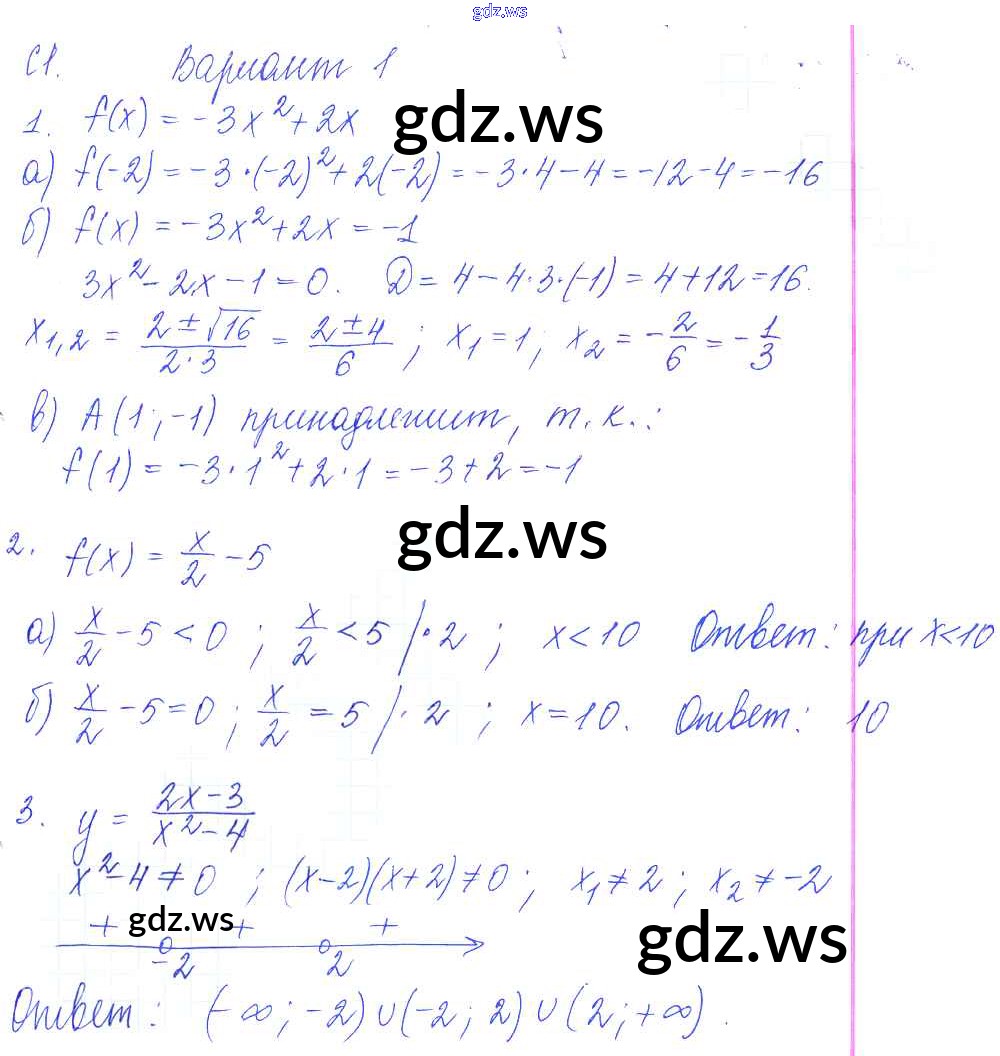 gdz.ws
С1. Вариант 1
1. f(x) = -3x² + 2x
gdz.ws
а) f(-2) = -3·(-2)² + 2(-2) = -3·4 - 4 = -12 - 4 = -16
б) f(x) = -3x² + 2x = -1
3x² - 2x - 1 = 0. D = 4 - 4·3·(-1) = 4 + 12 = 16.
x₁,₂ = (2 ± √16)/(2·3) = (2 ± 4)/6 ; x₁ = 1 ; x₂ = -2/6 = -1/3
в) А(1; -1) принадлежит, т.к.:
f(1) = -3·1² + 2·1 = -3 + 2 = -1
gdz.ws
2. f(x) = x/2 - 5
а) x/2 - 5 < 0 ; x/2 < 5 /·2 ; x < 10 Ответ: при x < 10
б) x/2 - 5 = 0 ; x/2 = 5 /·2 ; x = 10. Ответ: 10
3. y = (2x - 3)/(x² - 4)
x² - 4 ≠ 0 ; (x - 2)(x + 2) ≠ 0 ; x₁ ≠ 2 ; x₂ ≠ -2
+ + +
gdz.ws
gdz.ws
-2 2
Ответ: (-∞; -2) ∪ (-2; 2) ∪ (2; +∞).